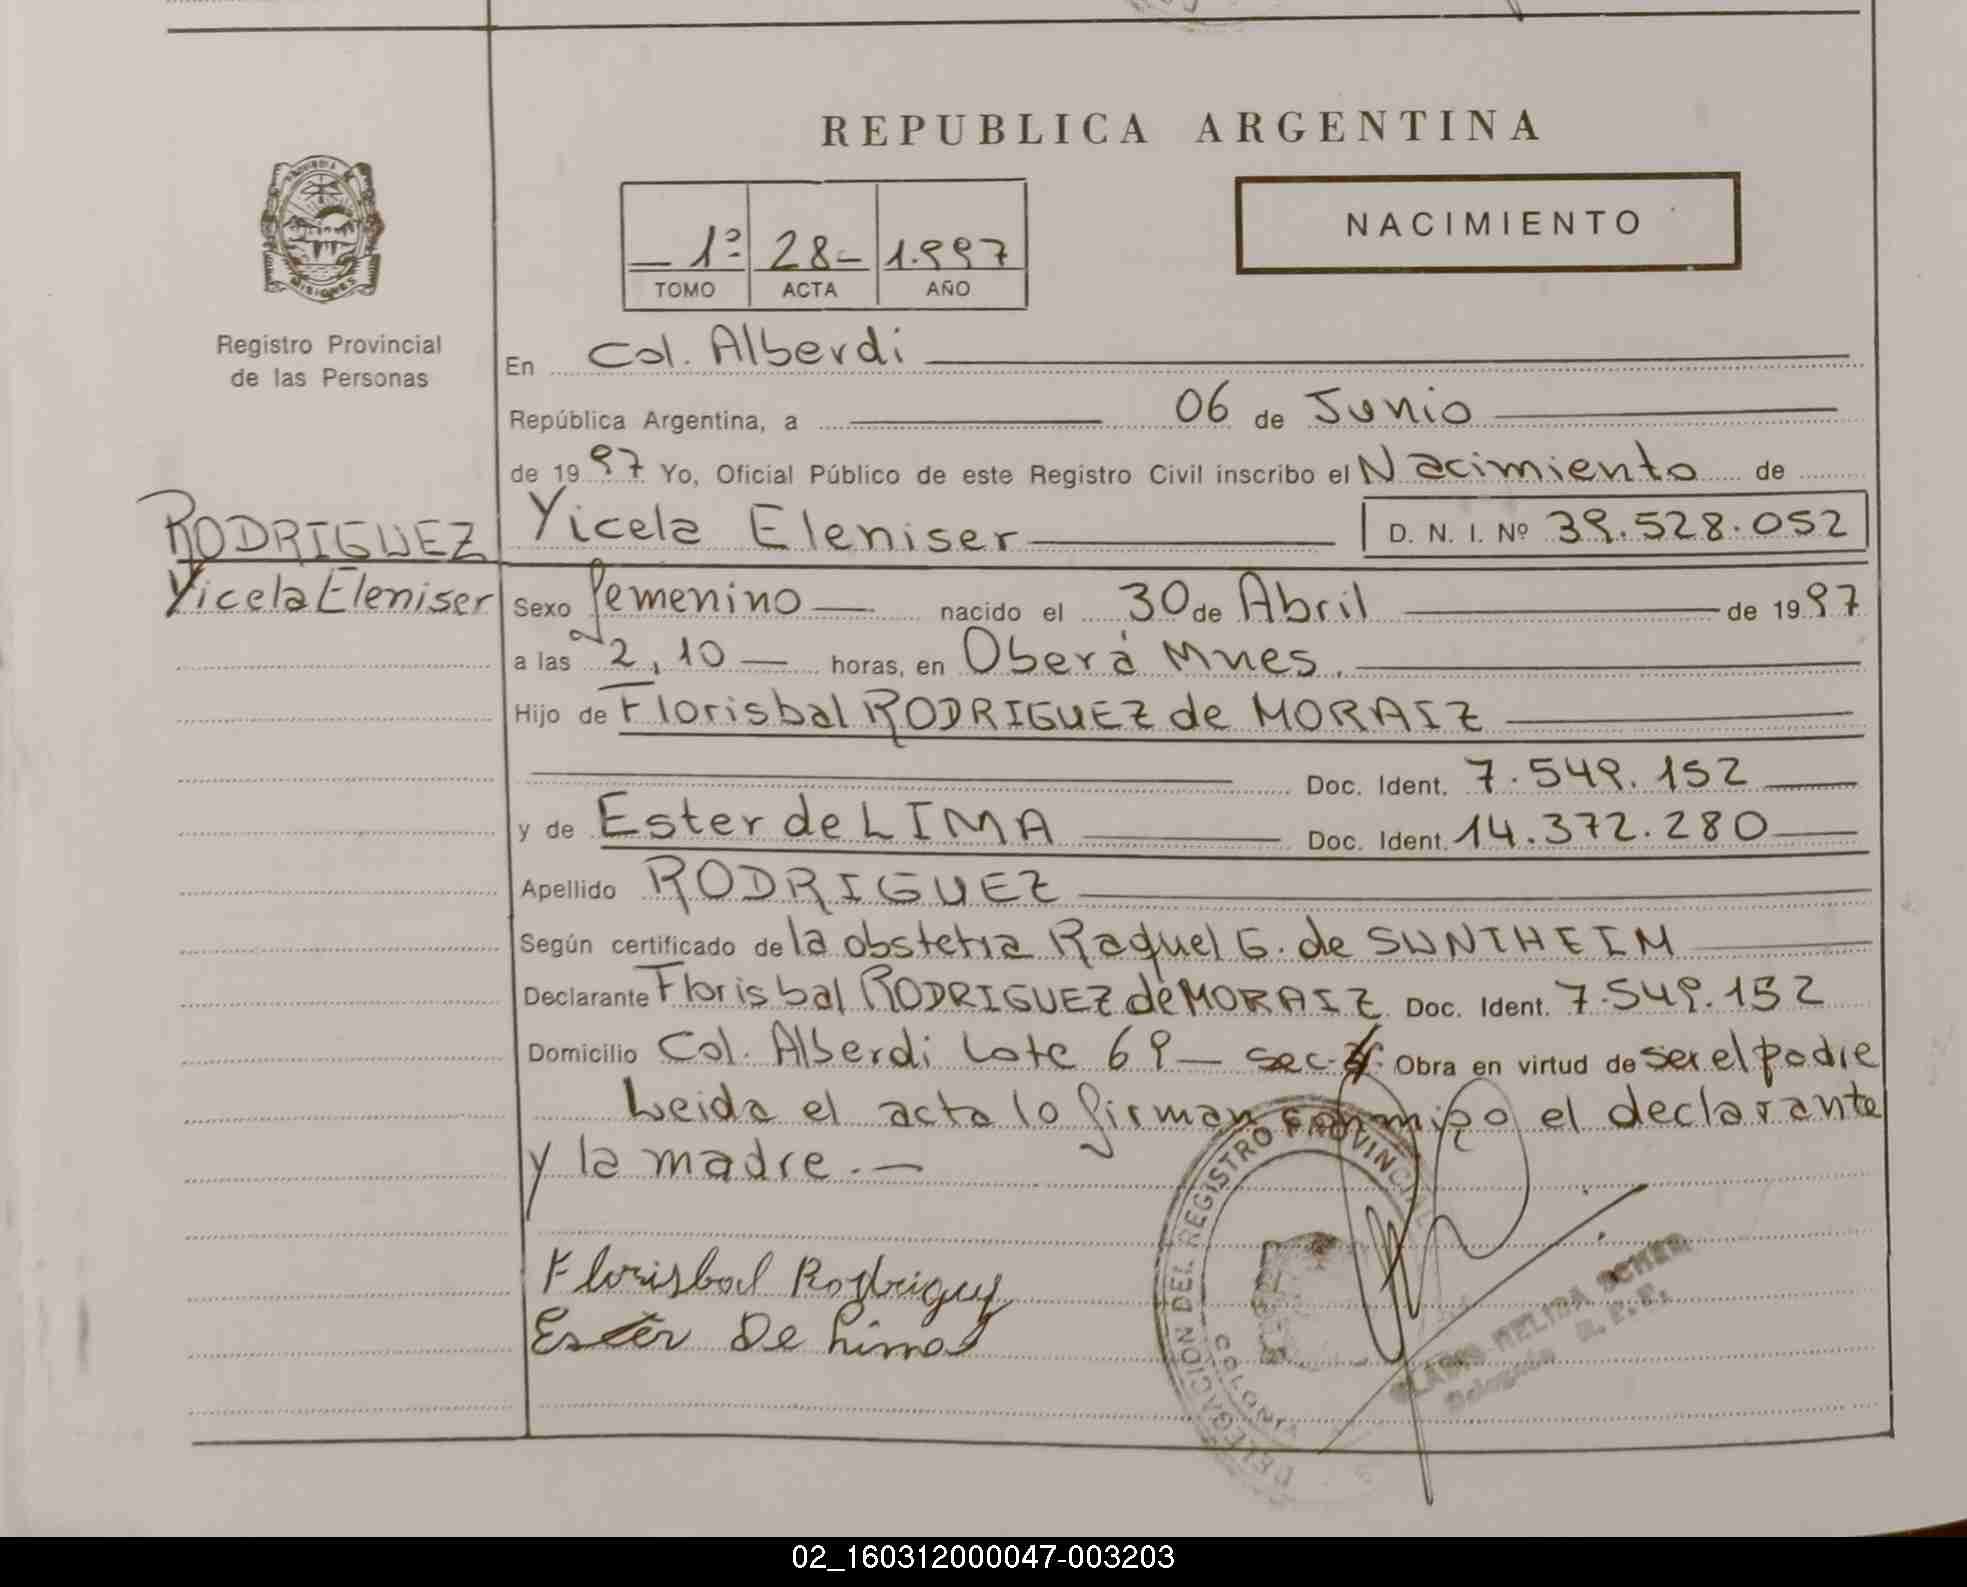 REPUBLICA ARGENTINA
PROVINCIA
MISIONES
Registro Provincial
de las Personas
1º 28- 1.997
TOMO ACTA AÑO
NACIMIENTO
En Col. Alberdi
República Argentina, a 06 de Junio
de 1997 Yo, Oficial Público de este Registro Civil inscribo el Nacimiento de
RODRIGUEZ
Yicela Eleniser
Yicela Eleniser D. N. I. Nº 39.528.052
Sexo femenino nacido el 30 de Abril de 1997
a las 2,10 horas, en Oberá Mnes.
Hijo de Florisbal RODRIGUEZ de MORAIZ
Doc. Ident. 7.549.152
y de Ester de LIMA Doc. Ident. 14.372.280
Apellido RODRIGUEZ
Según certificado de la obstetra Raquel G. de SUNTHEIM
Declarante Florisbal RODRIGUEZ de MORAIZ Doc. Ident. 7.549.152
Domicilio Col. Alberdi Lote 69 - sec. Obra en virtud de ser el padre
Leida el acta lo firman conmigo el declarante
y la madre.-
Florisbal Rodriguez
Ester De Lima
DELEGACION DEL REGISTRO PROVINCIAL
COLONIA
NELIDA
Delegada
02_160312000047-003203